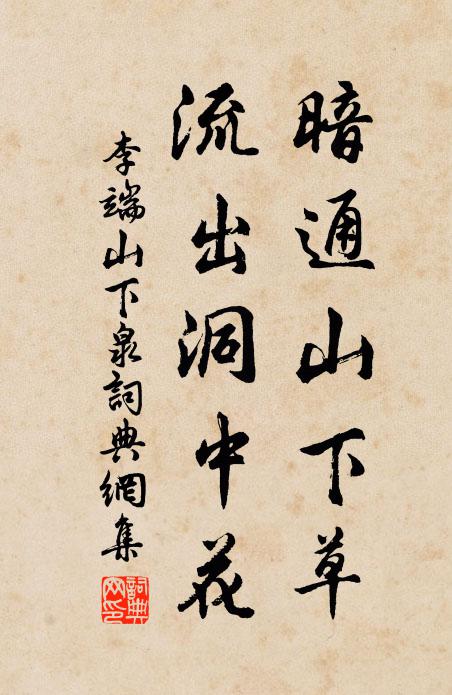 暗通山下草
流出洞中花
李端山下泉詞典網集
詞典
网印